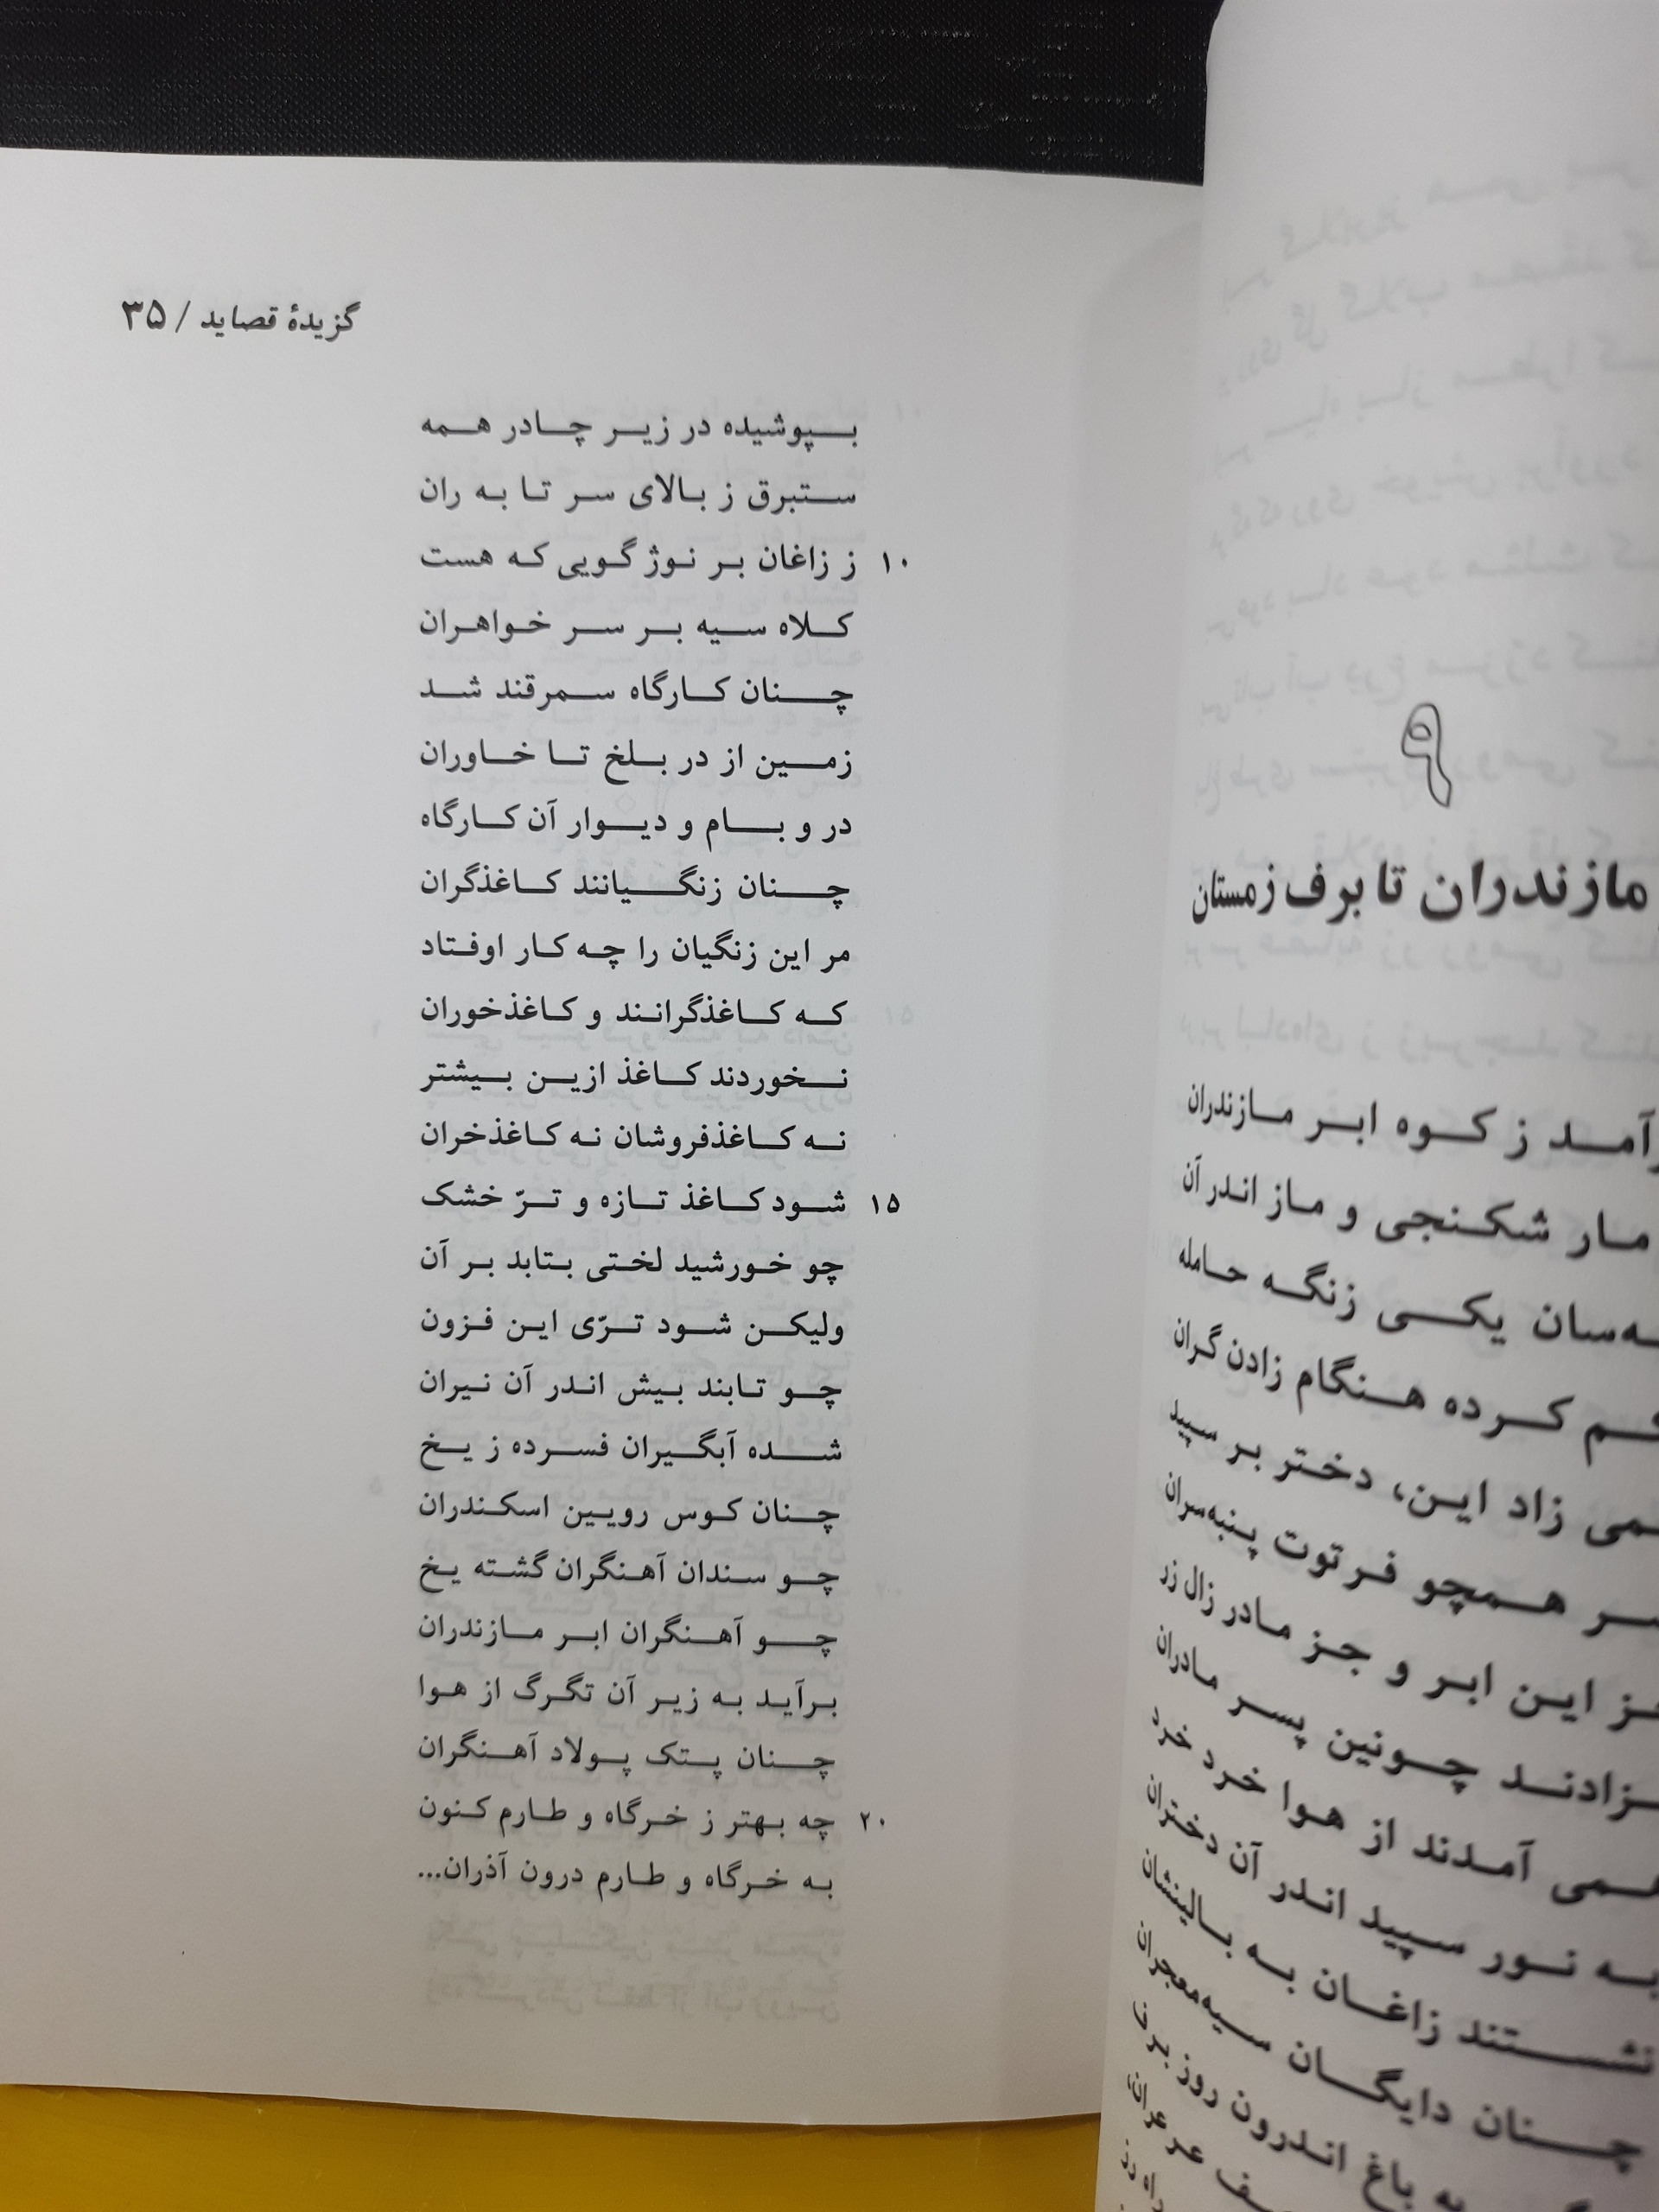 ۹
مازندران تا برف زمستان
آمد ز کوه ابر مازندران
مار شکنجی و ماز اندر آن
سان یکی زنگه حامله
کرده هنگام زادن گران
زاد این، دختر بر سپید
همچو فرتوت پنبه‌سران
این ابر و جز مادر زال زر
چونین پسر مادران
آمدند از هوا خرد خرد
به نور سپید اندر آن دختران
زاغان به بالینشان
چنان دایگان سیه‌معجران
باغ اندرون روز برف
عرعران
گزیدهٔ قصاید / ۳۵
بپوشیده در زیر چادر همه
ستبرق ز بالای سر تا به ران
۱۰ ز زاغان بر نوژ گویی که هست
کلاه سیه بر سر خواهران
چنان کارگاه سمرقند شد
زمین از در بلخ تا خاوران
در و بام و دیوار آن کارگاه
چنان زنگیانند کاغذگران
مر این زنگیان را چه کار اوفتاد
که کاغذگرانند و کاغذخوران
نخوردند کاغذ ازین بیشتر
نه کاغذفروشان نه کاغذخران
۱۵ شود کاغذ تازه و ترّ خشک
چو خورشید لختی بتابد بر آن
ولیکن شود ترّی این فزون
چو تابند بیش اندر آن نیران
شده آبگیران فسرده ز یخ
چنان کوس رویین اسکندران
چو سندان آهنگران گشته یخ
چو آهنگران ابر مازندران
برآید به زیر آن تگرگ از هوا
چنان پتک پولاد آهنگران
۲۰ چه بهتر ز خرگاه و طارم کنون
به خرگاه و طارم درون آذران...